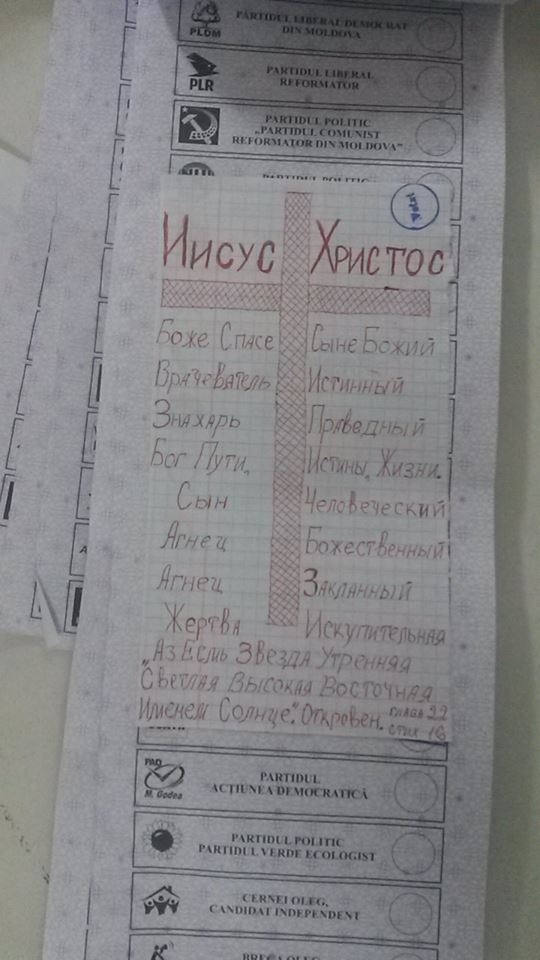 PLDM
PARTIDUL LIBERAL DEMOCRAT
DIN MOLDOVA
PLR
PARTIDUL LIBERAL
REFORMATOR
PARTIDUL POLITIC
„PARTIDUL COMUNIST
REFORMATOR DIN MOLDOVA”
PARTIDUL POLITIC
Votat
Иисус Христос
Боже Спасе Сыне Божий
Врачеватель Истинный
Знахарь Праведный
Бог Пути, Истины, Жизни.
Сын Человеческий
Агнец Божественный
Агнец Закланный
Жертва Искупительная
„Аз Есмь Звезда Утренняя
Светлая Высокая Восточная
Именем Солнце". Откровен. глава 22
стих 16
PAD
M. Godea
PARTIDUL
ACŢIUNEA DEMOCRATICĂ
PARTIDUL POLITIC
PARTIDUL VERDE ECOLOGIST
CERNEI OLEG,
CANDIDAT INDEPENDENT
BREGA OLEG